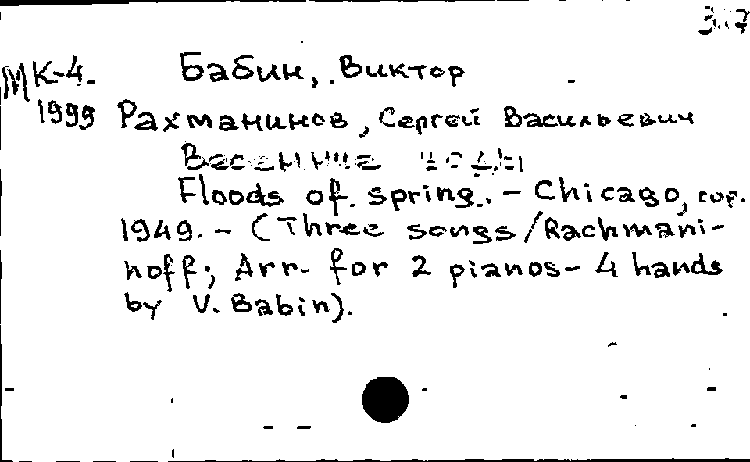 МК-4. Бабин, Виктор
1999 Рахманинов, Сергей Васильевич
Весенние воды
Floods of spring. - Chicago, cop.
1949. - (Three songs/Rachmani-
noff; Arr. for 2 pianos - 4 hands
by V. Babin).